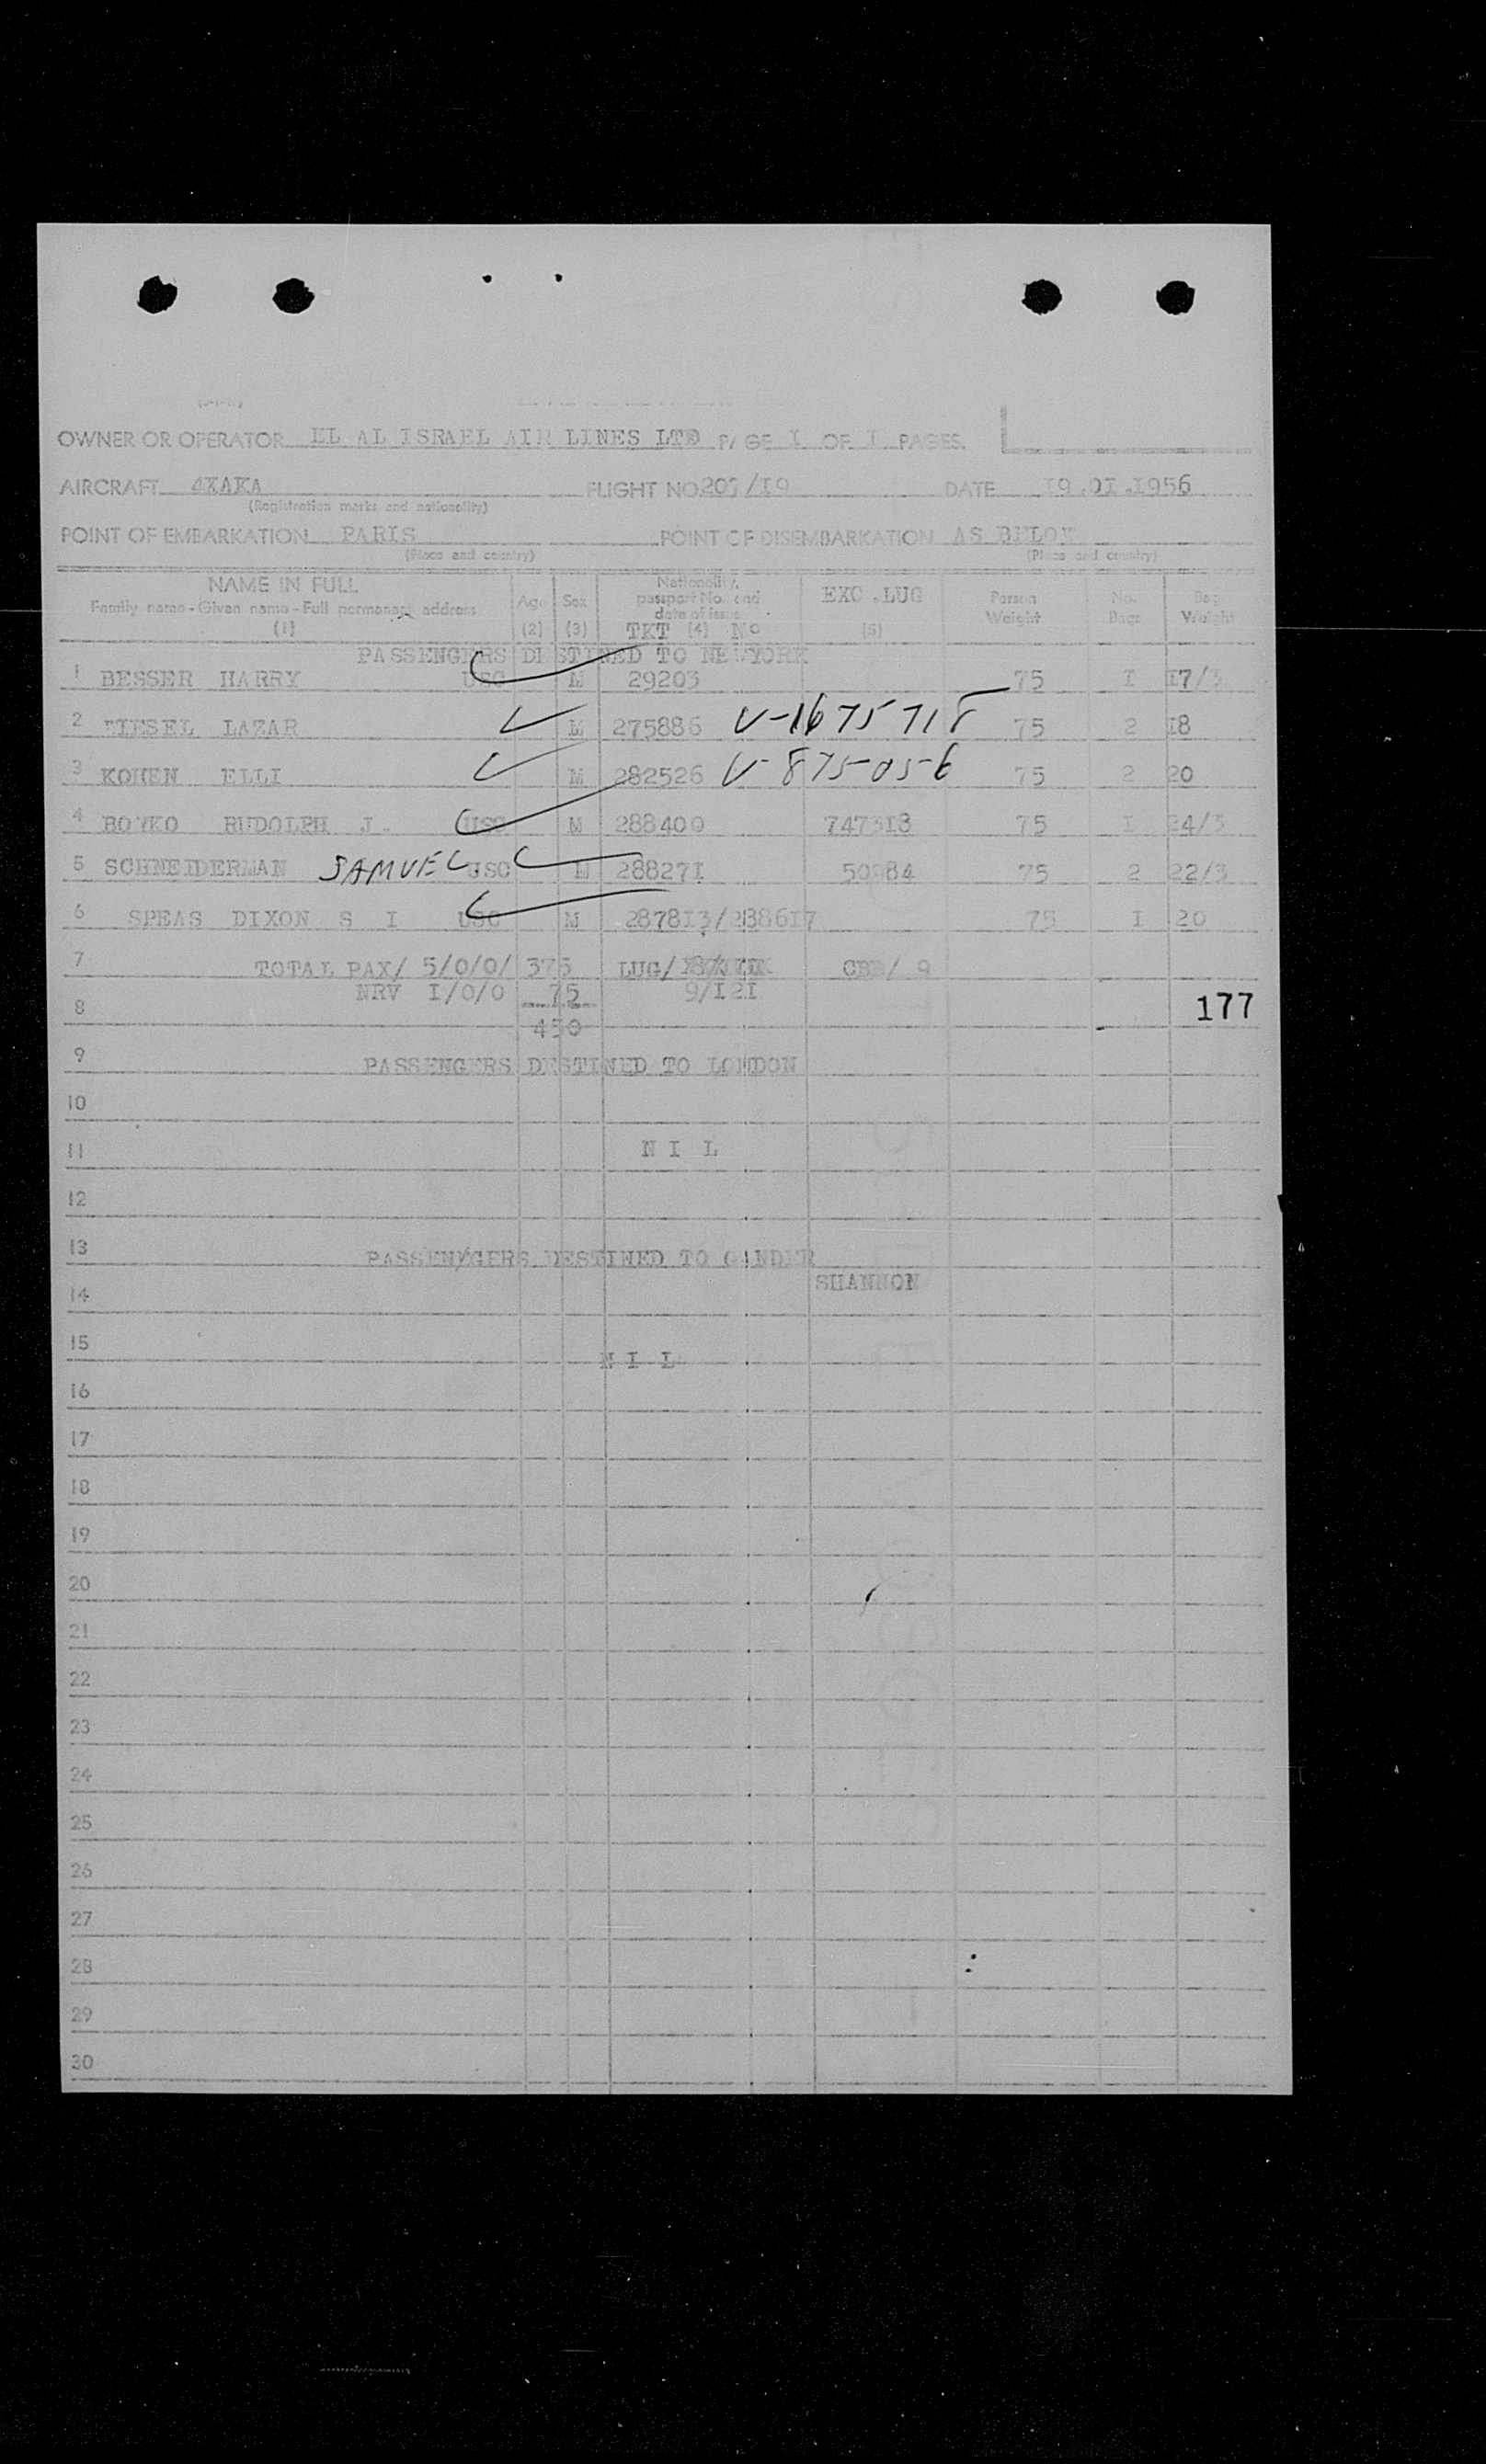 OWNER OR OPERATOR EL AL ISRAEL AIR LINES LTD PAGE I OF I PAGES
AIRCRAFT 4XAKA FLIGHT NO. /19 DATE 19.0I.1956
(Registration marks and nationality)
POINT OF EMBARKATION PARIS POINT OF DISEMBARKATION AS BELOW
(Place and country) (Place and country)
NAME IN FULL Nationality, EXC.LUG Person No. Bag
Family name - Given name - Full permanent address Age Sex passport No. and Weight Bags Weight
date of issue
(1) (2) (3) TKT (4) No (5)
PASSENGERS DESTINED TO NEWYORK
1 BESSER HARRY USC M 29203 75 I I7/3
2 LAZAR M 275886 V-1675718 75 2 I8
3 KOHEN ELLI M 282526 V-875056 75 2 20
4 RUDOLPH J. USC M 288400 747318 75 I 24/3
5 SCHNEIDERMAN SAMUEL USC M 28827I 50984 75 2 22/3
6 SPEAS DIXON S I USC M 287813/288617 75 I 20
7 TOTAL PAX/ 5/0/0/ 375 LUG/ / 9
NRV I/0/0 75 9/I2I
8 177
450
9 PASSENGERS DESTINED TO LONDON
10
11 N I L
12
13 PASSEN/GERS DESTINED TO GANDER
SHANNON
14
15 N I L
16
17
18
19
20
21
22
23
24
25
26
27
28
29
30